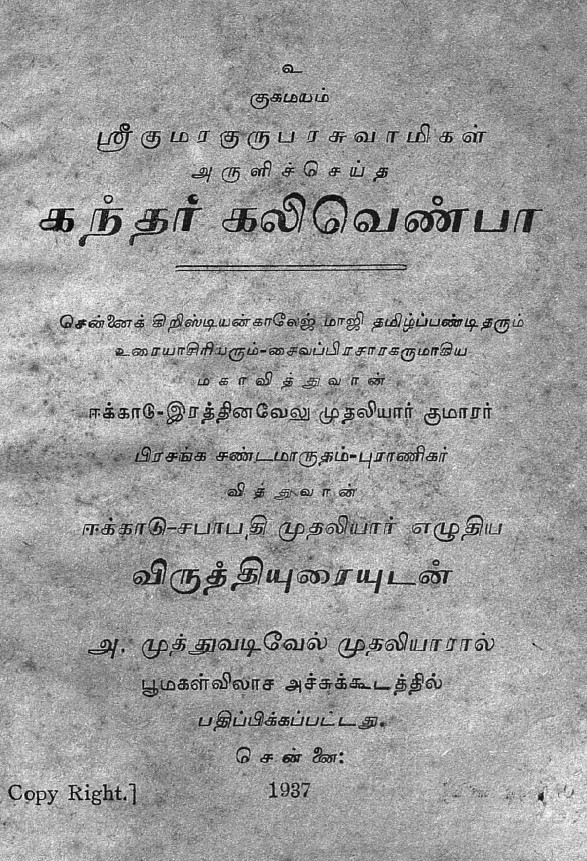 உ
குகமயம்
ஸ்ரீ குமரகுருபரசுவாமிகள்
அருளிச்செய்த
கந்தர் கலிவெண்பா
சென்னைக் கிறிஸ்டியன்காலேஜ் மாஜி தமிழ்ப்பண்டிதரும்
உரையாசிரியரும்-சைவப்பிரசாரகருமாகிய
மகாவித்துவான்
ஈக்காடு-இரத்தினவேலு முதலியார் குமாரர்
பிரசங்க சண்டமாருதம்-புராணிகர்
வித்துவான்
ஈக்காடு-சபாபதி முதலியார் எழுதிய
விருத்தியுரையுடன்
அ. முத்துவடிவேல் முதலியாரால்
பூமகள்விலாச அச்சுக்கூடத்தில்
பதிப்பிக்கப்பட்டது.
சென்னை:
Copy Right.] 1937